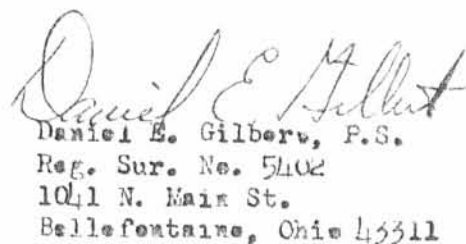 Daniel E Gilbert
Daniel E. Gilbert, P.S.
Reg. Sur. No. 5402
1041 N. Main St.
Bellefontaine, Ohio 43311